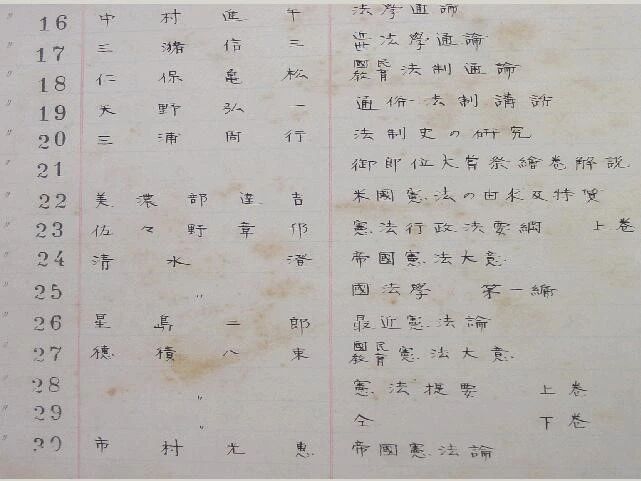 〃 16 中村進午 法學通論
〃 17 三潴信三 近世法學通論
〃 18 仁保亀松 國民教育法制通論
〃 19 天野弘一 通俗法制講話
〃 20 三浦周行 法制史の研究
〃 21 御即位大嘗祭繪巻解説
〃 22 美濃部達吉 米國憲法の由来及特質
〃 23 佐々野章邦 憲法行政法要綱 上巻
〃 24 清水澄 帝國憲法大意
〃 25 〃 國法學 第一編
〃 26 星島二郎 最近憲法論
〃 27 穂積八束 國民教育憲法大意
〃 28 〃 憲法提要 上巻
〃 29 〃 仝 下巻
〃 30 市村光恵 帝國憲法論